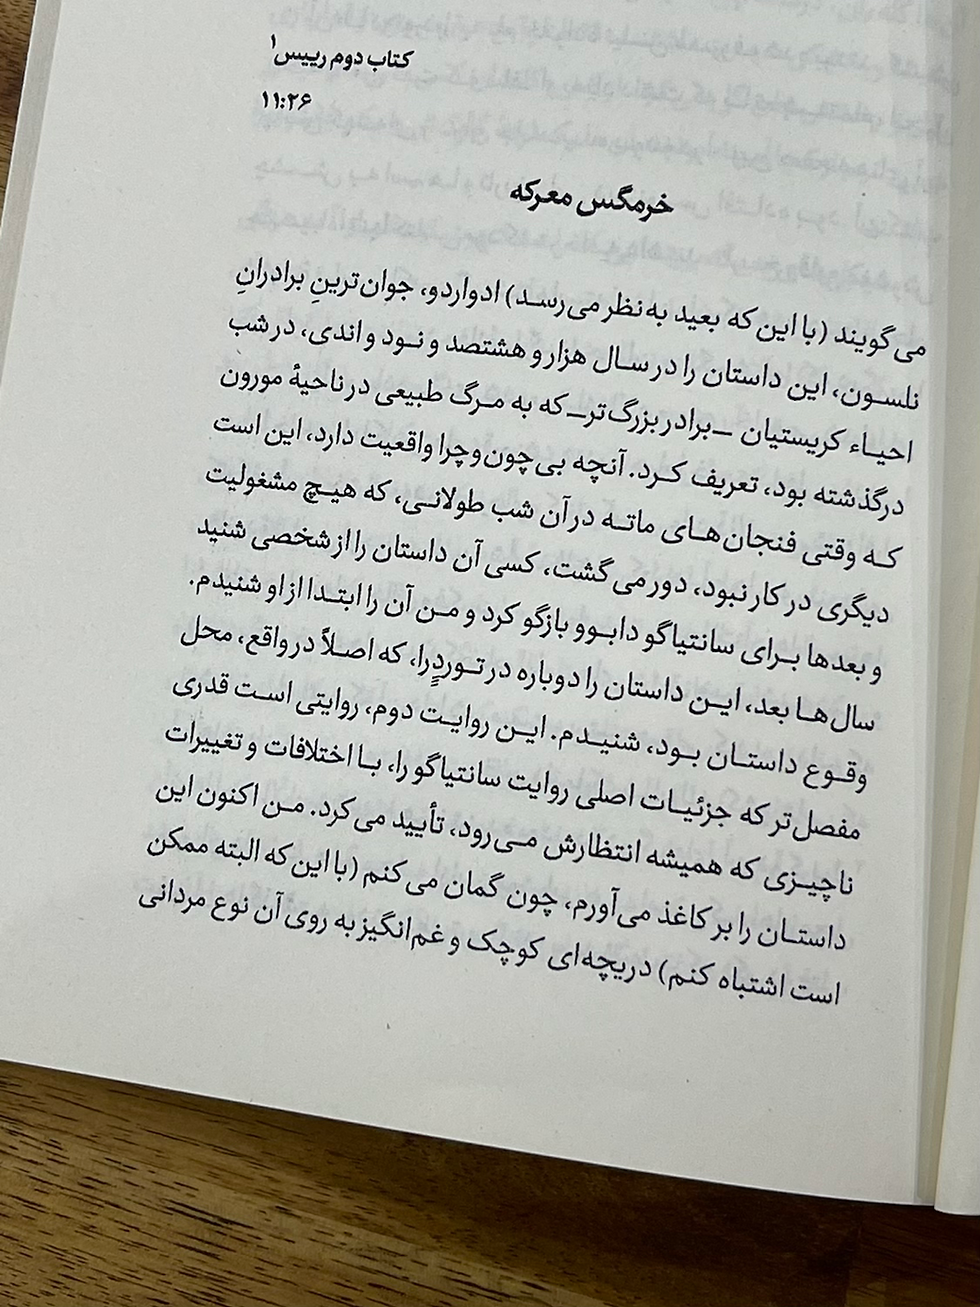 کتاب دوم رییس۱
۱۱:۲۶
خرمگس معرکه
می‌گویند (با این‌که بعید به‌نظر می‌رسد) ادواردو، جوان‌ترینِ برادرانِ
نلسون، این داستان را در سال هزار و هشتصد و نود و اندی، در شب
احیاء کریستیان –برادر بزرگ‌تر– که به مرگ طبیعی در ناحیهٔ مورون
درگذشته بود، تعریف کرد. آنچه بی‌چون‌وچرا واقعیت دارد، این است
که وقتی فنجان‌های ماته در آن شب طولانی، که هیچ مشغولیت
دیگری در کار نبود، دور می‌گشت، کسی آن داستان را از شخصی شنید
و بعدها برای سانتیاگو دابوو بازگو کرد و من آن را ابتدا از او شنیدم.
سال‌ها بعد، این داستان را دوباره در توردِرا، که اصلاً در واقع، محل
وقوع داستان بود، شنیدم. این روایت دوم، روایتی است قدری
مفصل‌تر که جزئیات اصلی روایت سانتیاگو را، با اختلافات و تغییرات
ناچیزی که همیشه انتظارش می‌رود، تأیید می‌کرد. من اکنون این
داستان را بر کاغذ می‌آورم، چون گمان می‌کنم (با این‌که البته ممکن
است اشتباه کنم) دریچه‌ای کوچک و غم‌انگیز به روی آن نوع مردانی